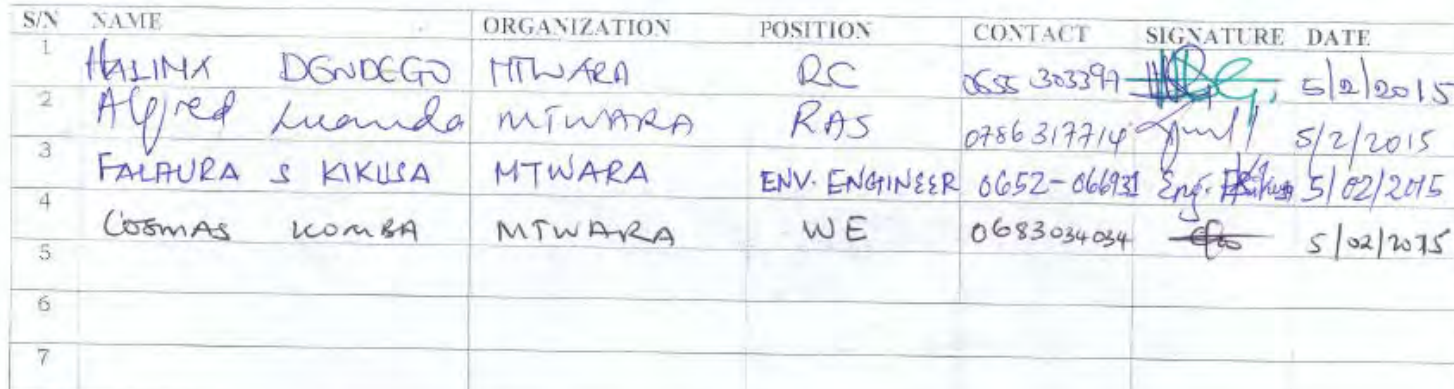 S/N NAME ORGANIZATION POSITION CONTACT SIGNATURE DATE
1 HALIMA DENDEGO MTWARA RC 0655 303397 5/2/2015
2 Alfred Luanda MTWARA RAS 0786317714 5/2/2015
3 FALAURA S KIKUSA MTWARA ENV. ENGINEER 0652-066931 Eng. 5/02/2015
4 COSMAS KOMBA MTWARA WE 0683034034 5/02/2015
5
6
7